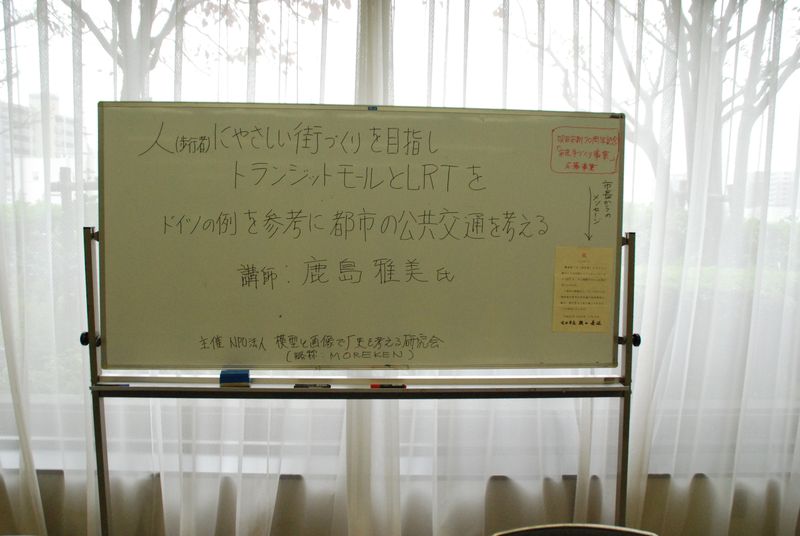 人(歩行者)にやさしい街づくりを目指し
トランジットモールとLRTを
ドイツの例を参考に都市の公共交通を考える
講師：鹿島雅美氏
主催 NPO法人 模型と画像で「史を考える研究会
(略称：MOREKEN)
70周年記念
「市民手づくり事業」
応募事業
市長からの
メッセージ